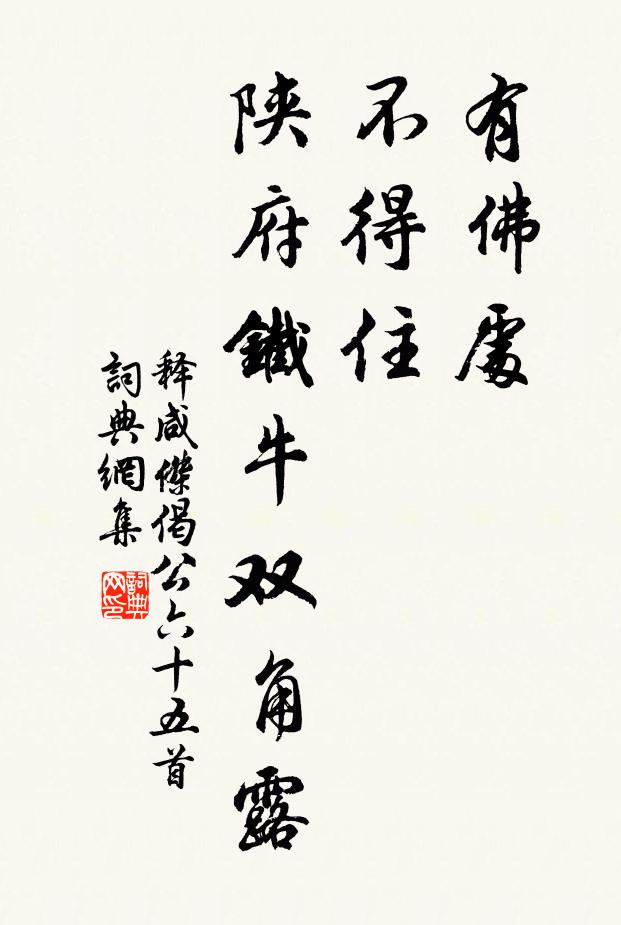 有佛處
不得住
陝府鐵牛双角露
释咸傑偈公六十五首
詞典網集
詞典網印